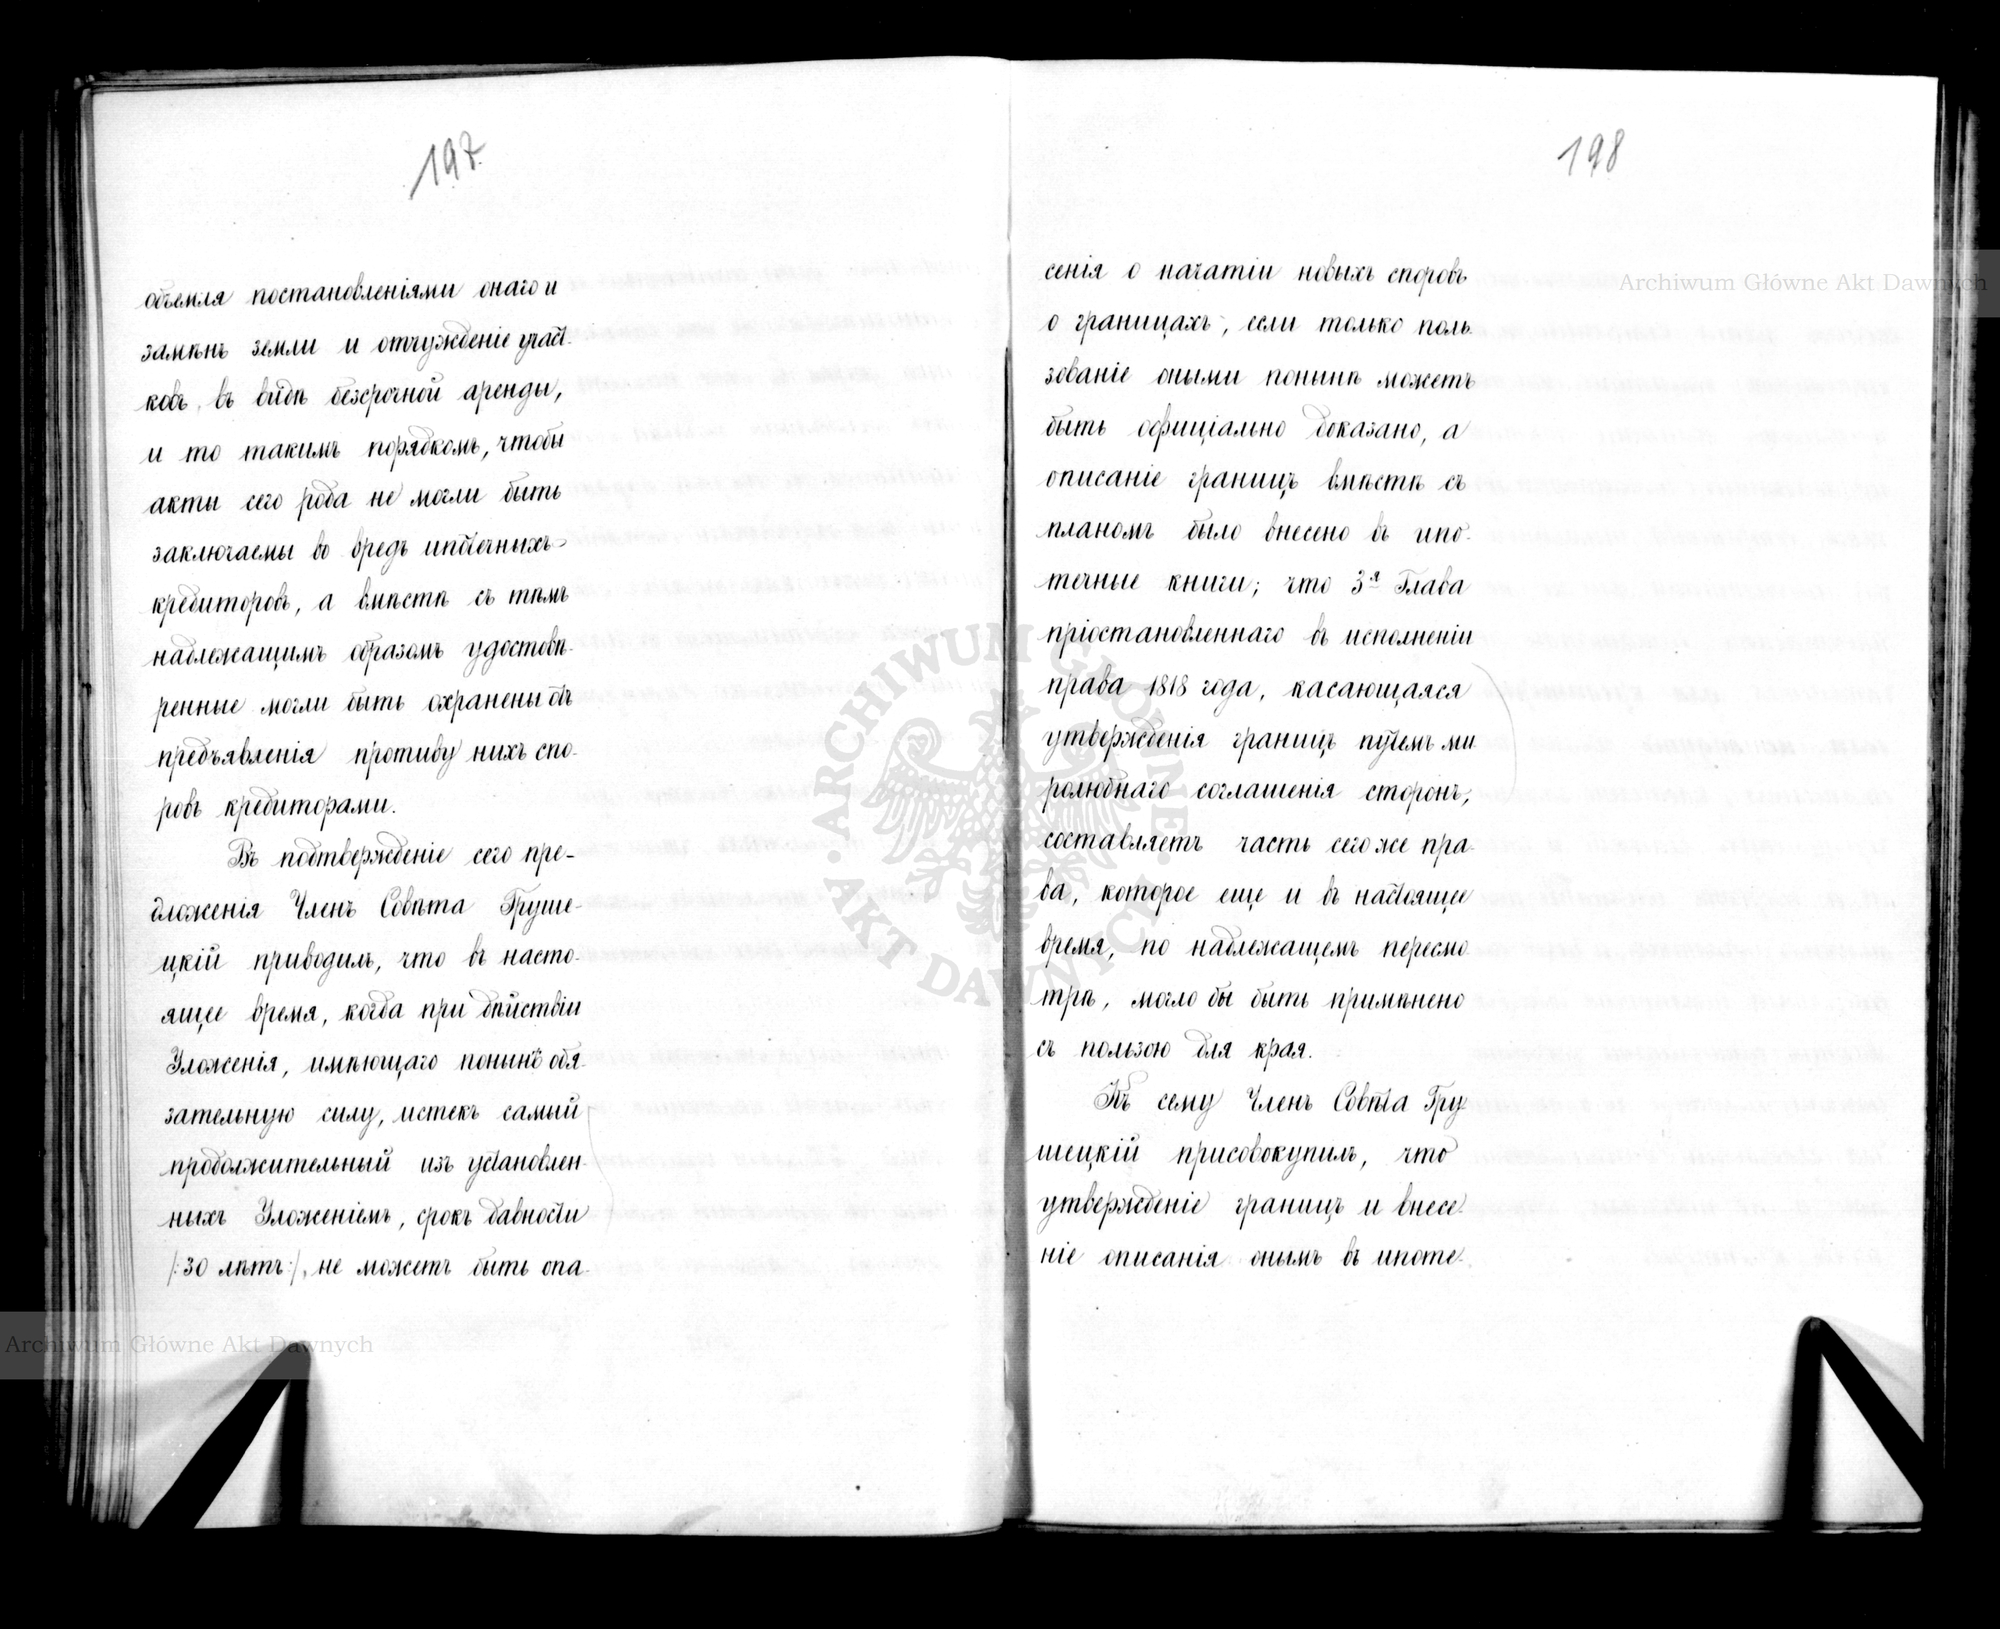 197
объемля постановленіями онаго и
замѣнъ земли и отчужденіе участ-
ковъ, въ видѣ безсрочной аренды,
и то такимъ порядкомъ, чтобы
акты сего рода не могли быть
заключаемы во вредъ ипотечныхъ
кредиторовъ, а вмѣстѣ съ тѣмъ
надлежащимъ образомъ удостовѣ-
ренные могли быть охранены отъ
предъявленія противу нихъ спо-
ровъ кредиторами.
Въ подтвержденіе сего пре-
дложенія Членъ Совѣта Груше-
цкій приводилъ, что въ насто-
ящее время, когда при дѣйствіи
Уложенія, имѣющаго понынѣ обя-
зательную силу, истекъ самый
продолжительный изъ установлен-
ныхъ Уложеніемъ, срокъ давности
/:30 лѣтъ:/, не можетъ быть опа
198
сенія о начатіи новыхъ споровъ
о границахъ, если только поль
зованіе оными понынѣ можетъ
быть офиціально доказано, а
описаніе границъ вмѣстѣ съ
планомъ было внесено въ ипо-
течные книги; что 3я Глава
пріостановленнаго въ исполненіи
права 1818 года, касающаяся
утвержденія границъ путемъ ми
ролюбнаго соглашенія сторонъ,
составляетъ часть сего же пра-
ва, которое еще и въ настоящее
время, по надлежащемъ пересмо
трѣ, могло бы быть примѣнено
съ пользою для края.
Къ сему Членъ Совѣта Гру
шецкій присовокупилъ, что
утвержденіе границъ и внесе
ніе описанія онымъ въ ипоте-
Archiwum Główne Akt Dawnych
Archiwum Główne Akt Dawnych
ARCHIWUM GŁÓWNE
AKT DAWNYCH